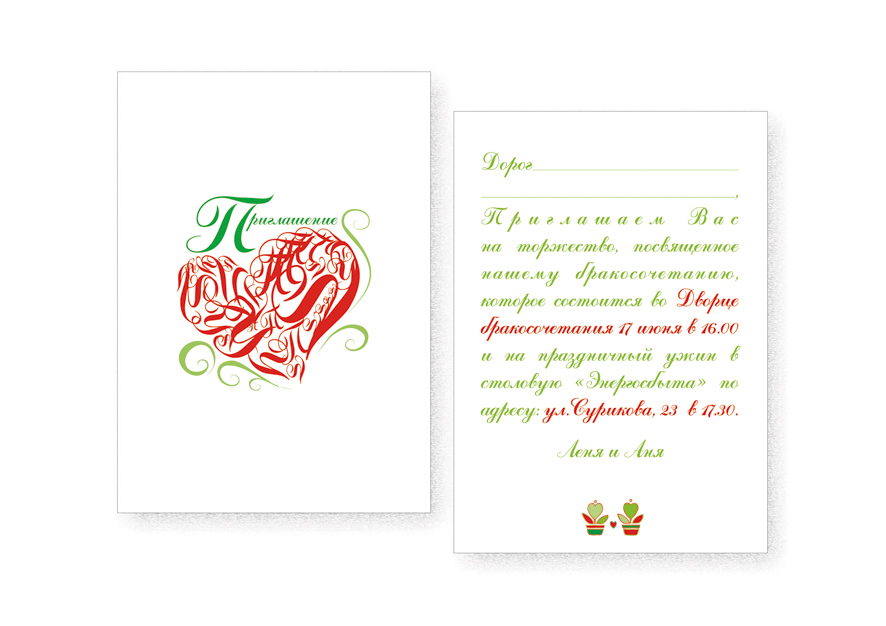 Приглашение
Дорог
,
Приглашаем Вас
на торжество, посвященное
нашему бракосочетанию,
которое состоится во Дворце
бракосочетания 17 июня в 16.00
и на праздничный ужин в
столовую «Энергосбыта» по
адресу: ул.Сурикова, 23 в 17.30.
Леня и Аня